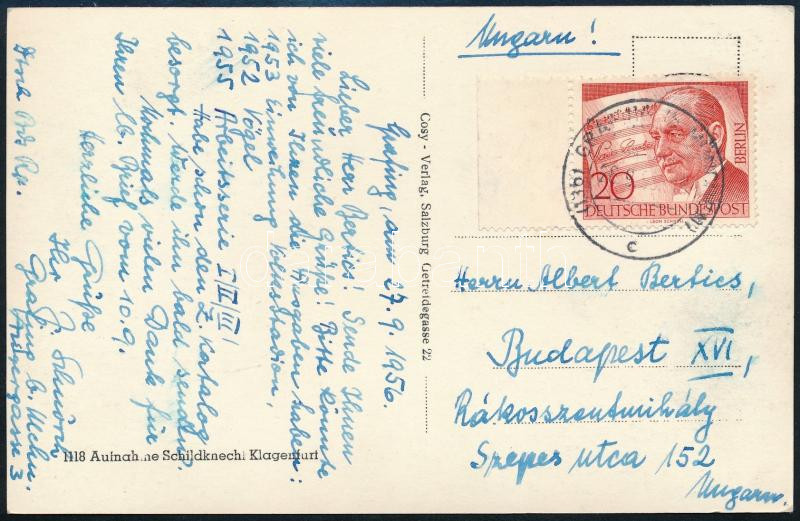 Grafing, am 27.9.1956.
Lieber Herr Bertics! Sende Ihnen
viele freundliche Grüße! Bitte könnte
ich von Ihnen die Ausgaben haben:
1953 Einweihung Volksstadion,
1952 Vögel
1955 Arbeitsserie I II III!
Habe schon den Z. Katalog
besorgt. Werde ihn bald senden.
Nochmals vielen Dank für
Ihren lb. Brief vom 10.9.
Herzliche Grüße
Ihr
Grafing b. Mchn.
Cosy - Verlag, Salzburg Getreidegasse 22
1118 Aufnahme Schildknecht Klagenfurt
Ungarn!
20
DEUTSCHE BUNDESPOST
BERLIN
c
Herrn Albert Bertics,
Budapest XVI,
Rákosszentmihály
Szepes utca 152
Ungarn.